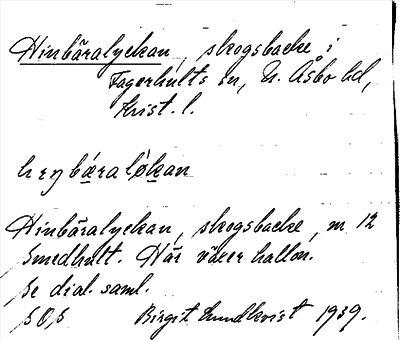 Hinbäralyckan, skogsbacke i
Fagerhults sn, N. Åsbo hd,
Krist. l.
Hinbäralyckan, skogsbacke, m 12
Smedhult. Här växer hallon.
Se dial. saml.
SOS Birgit Lundkvist 1939.